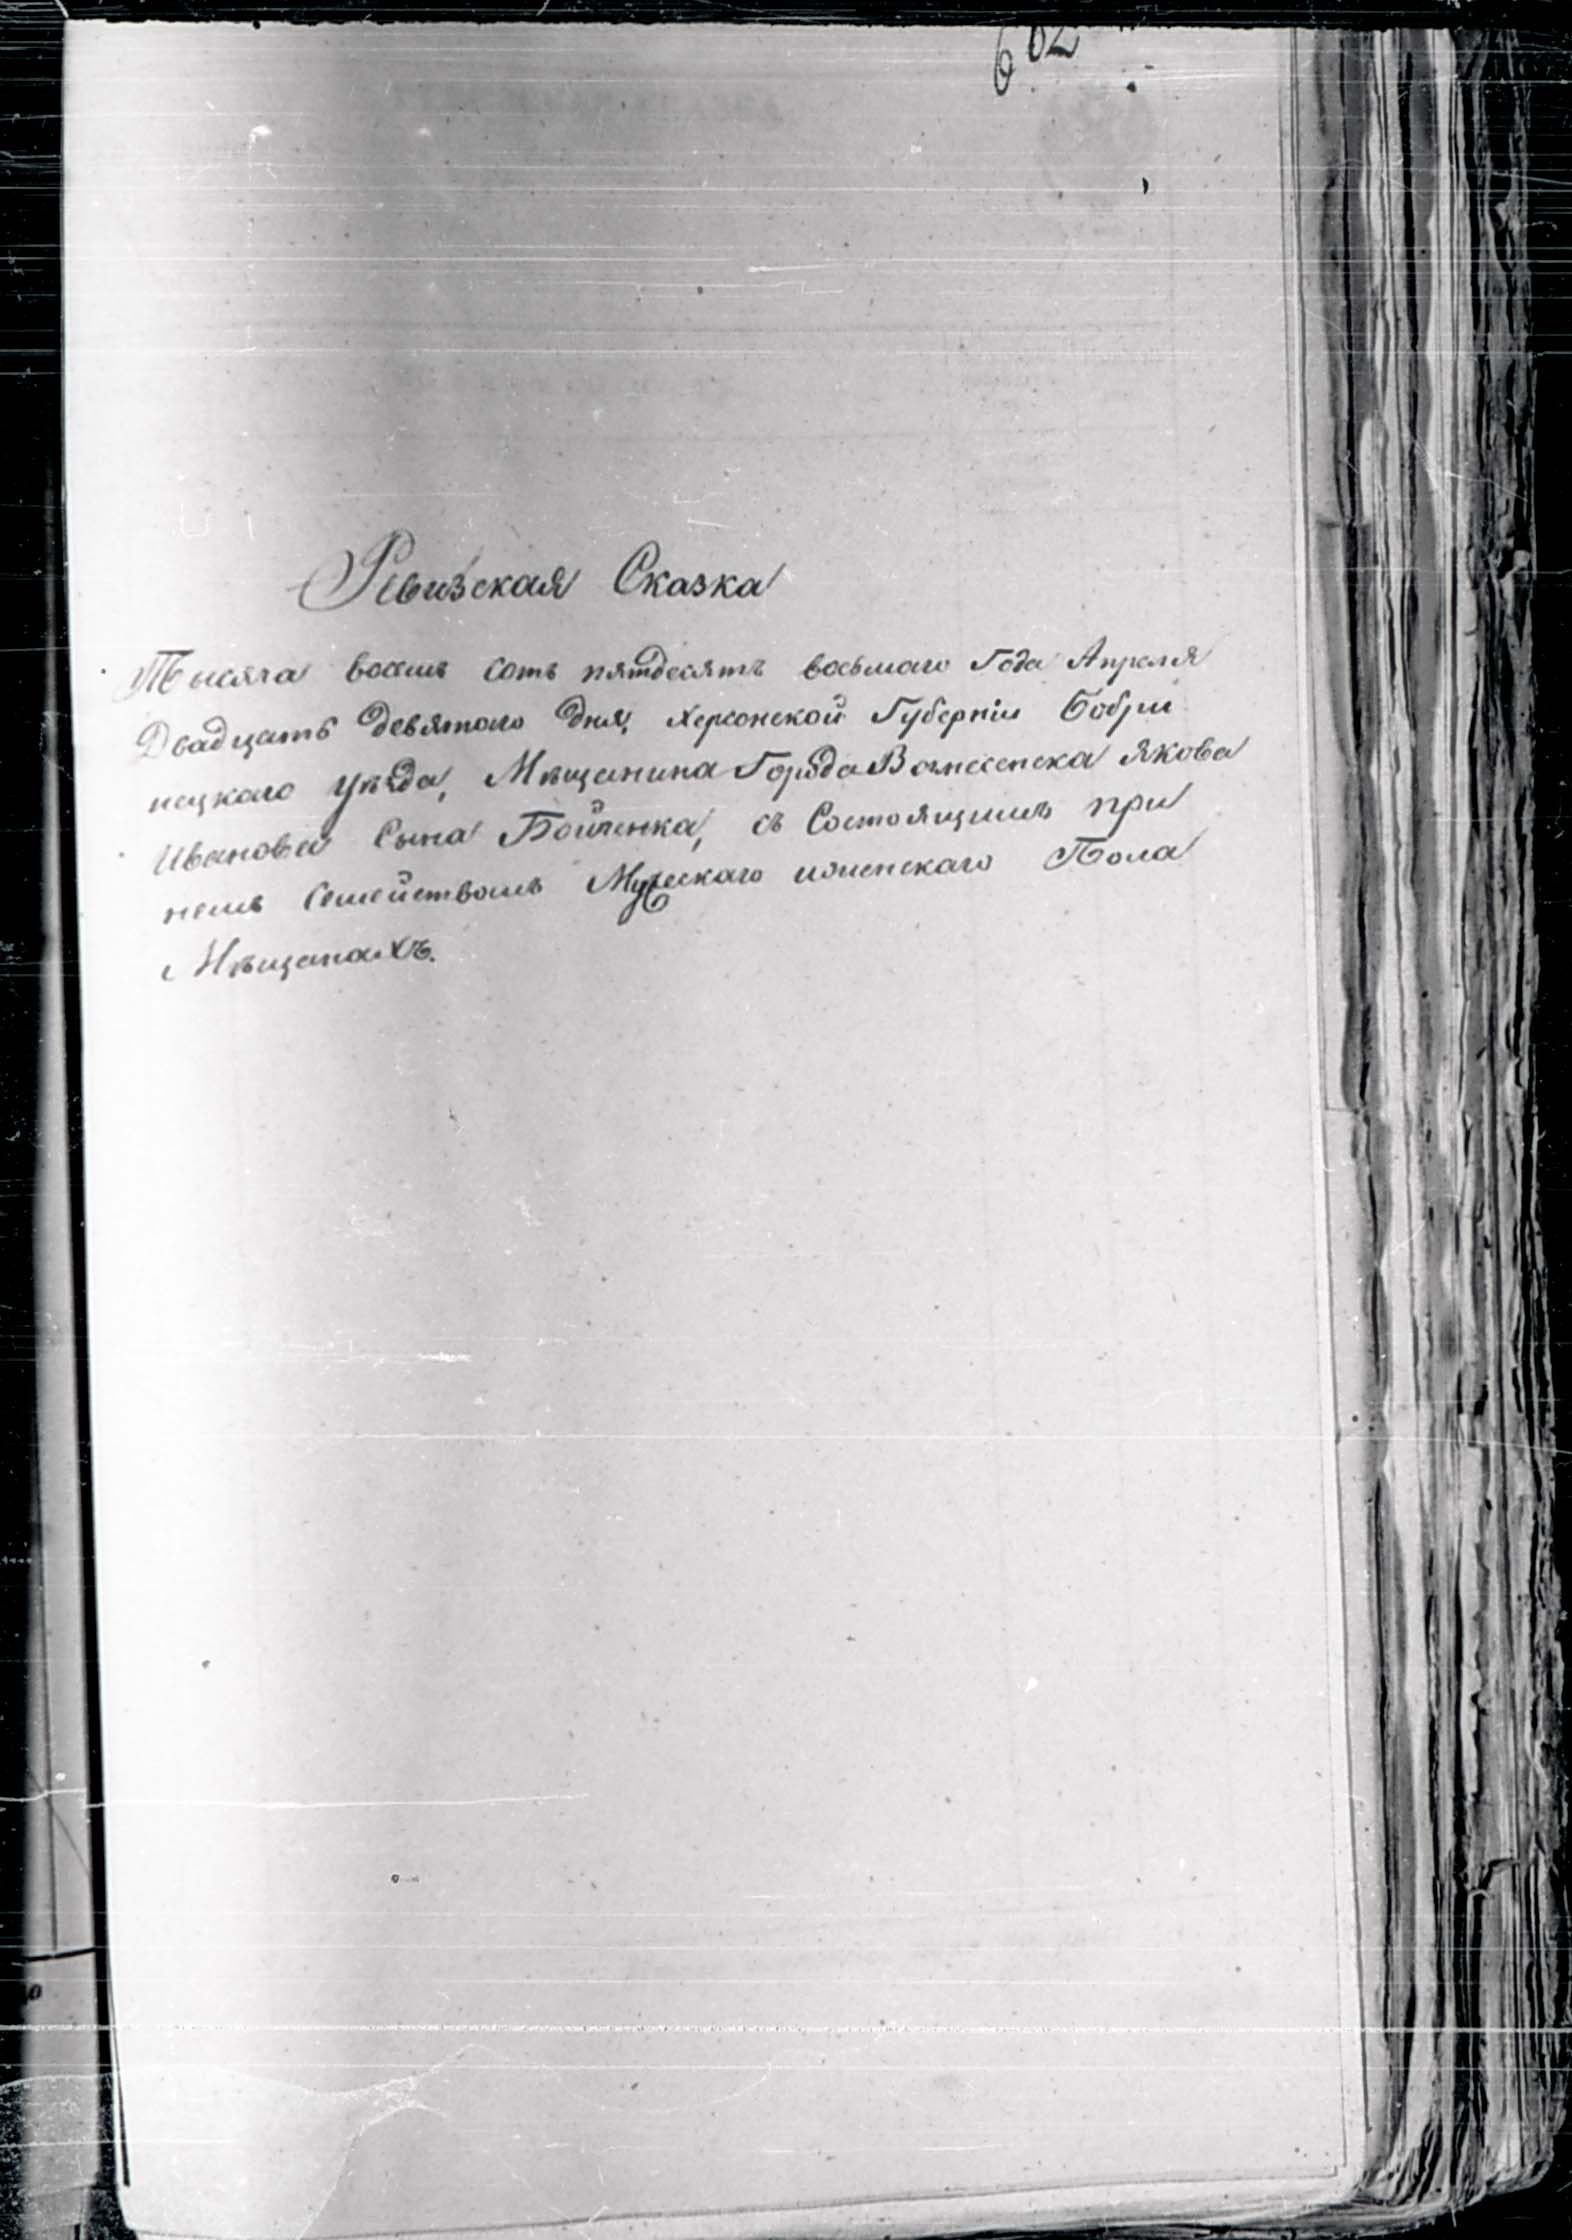 662
Ревизская Сказка
Тысяча восемь сотъ пятдесятъ восьмаго Года Апреля
Двадцать девятого дня, Херсонской Губерніи Бобри
нецкаго уѣзда, Мѣщанина Города Вознесенска Якова
Иванова Сына Бойченка, съ Состоящимъ при
немъ Семействомъ Мужескаго иженскаго Пола
Мѣщанахъ.